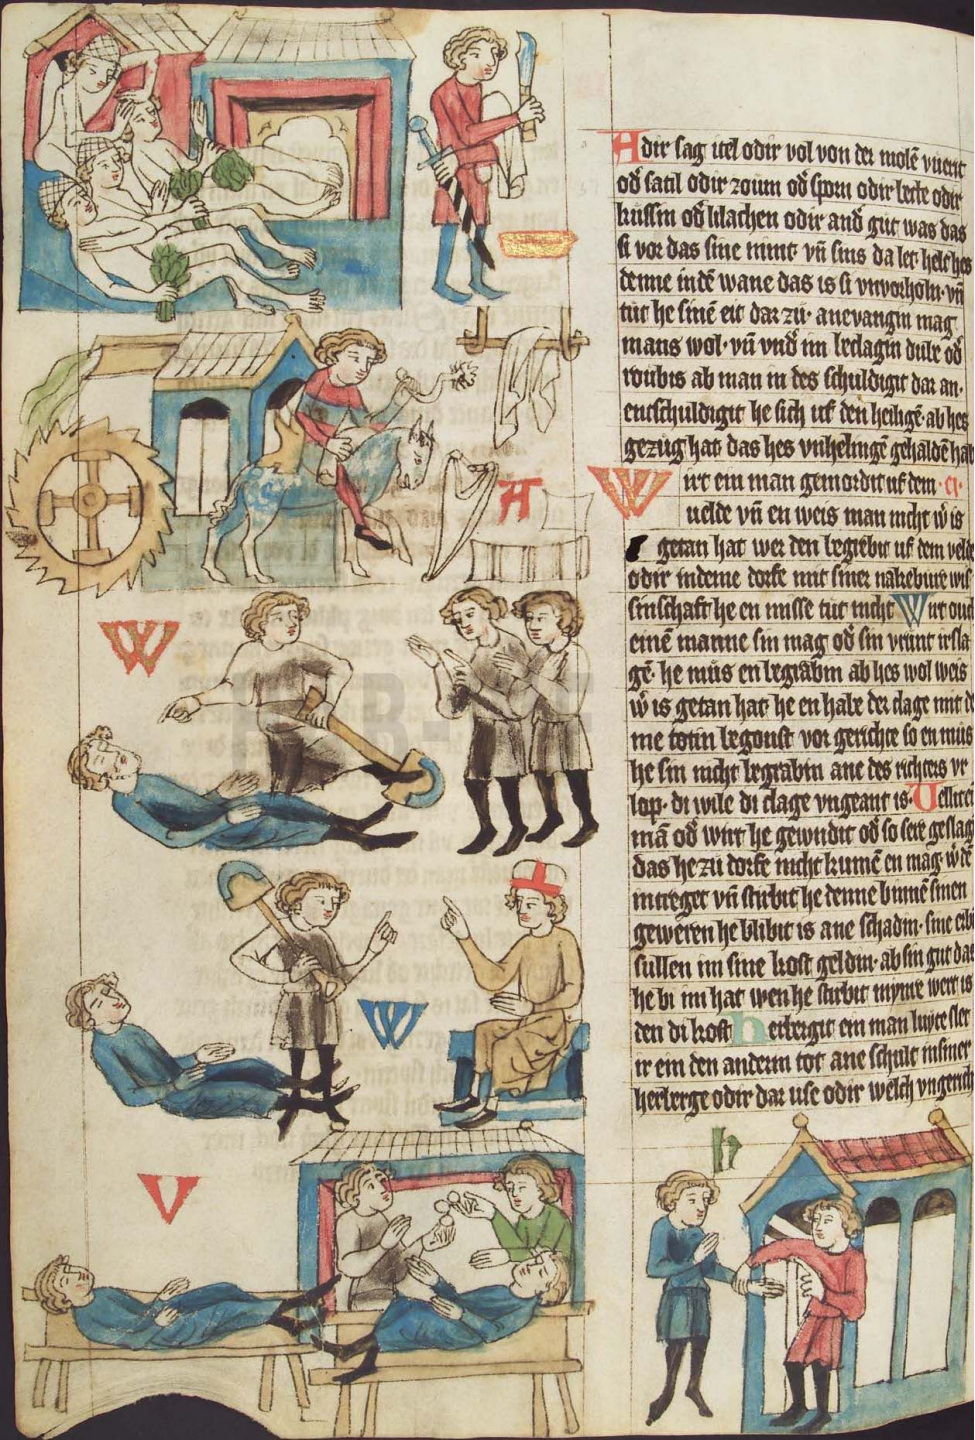 Adir sag itel odir vol von der molē vuerit
od̄ satil odir zoum od̄ sporn odir lecke odir
kussin od̄ lilachen odir and̄ gut was das
si vor das sine nimt· vn̄ sins da let· helt hes
denne indē wane das is si vnvorholn· vn̄
tut he sinē eit dar zu· anevangin mag
mans wol· vn̄ vnd̄ im beclagin dube od̄
roubis ab man in des schuldigit dar an·
entschuldigit he sich uf den heiligē· ab hes
gezug hat das hes vnhelingē gehaldē hab
Wirt ein man gemordit uf dem · ci·
velde vn̄ en weis man nicht w̄ is
getan hat wer den begrebit uf dem velde
odir indeme dorfe mit siner nakebure wis
sinschaft he en misse tut nicht Wirt ouch
einē manne sin mag od̄ sin vrunt irsla
gē· he mus en begrabin ab hes wol weis
w̄ is getan hat· he en habe der clage mit de
me totin begonst vor gerichte so en mus
he sin nicht begrabin ane des richters vr
lop· di wile di clage vngeant is· Vellit ei
mā od̄ wirt he gewndit od̄ so sere geslag
das he zu dorfe nicht kumē en mag w̄ dē
intreget vn̄ stirbit he denne binnē sinen
geweren he blibit is ane schadin· sine erbi
sullen im sine kost geldin· ab sin gut das
he bi im hat wen he stirbit mynre wert is
den di kost· herbergit ein man luyte slet
ir ein den anderin tot ane schult insiner
herberge odir dar use odir welch vngerich
A
W
W
V
h